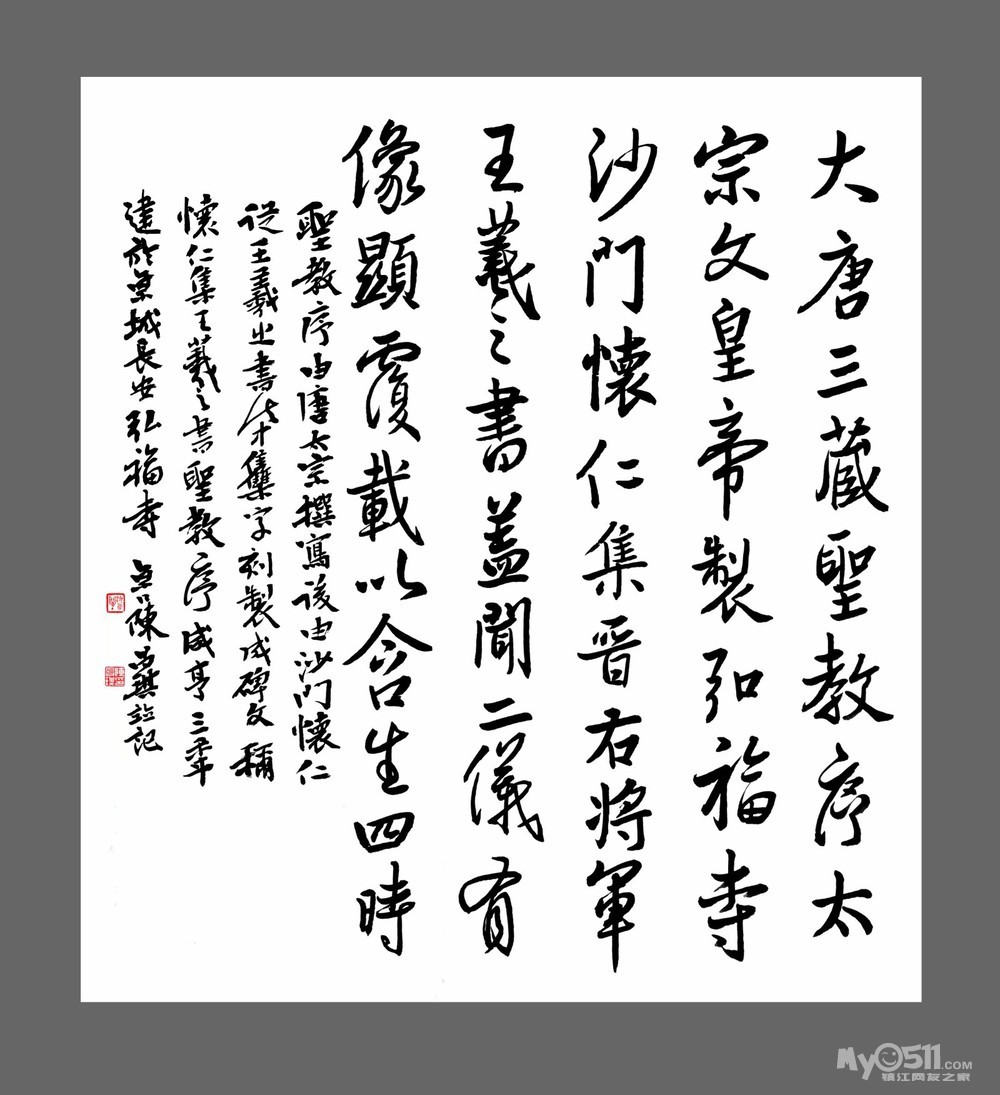 大唐三藏聖教序太
宗文皇帝製弘福寺
沙門懷仁集晉右將軍
王羲之書蓋聞二儀有
像顯覆載以含生四時
聖教序由唐太宗撰寫後由沙門懷仁
從王羲之書法中集字刻製成碑文稱
懷仁集王羲之書聖教序咸亨三年
建於京城長安弘福寺 陳 記
My0511.com
镇江网友之家